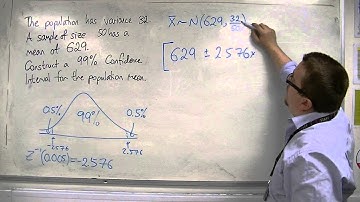 The population has variance 32.
A sample of size 50 has a
mean of 629.
Construct a 99% Confidence
Interval for the population mean.
X̄ ~ N(629, 32/50)
[629 ± 2.576×
0.5%
99%
0.5%
-2.576
2.576
Z⁻¹(0.005) = -2.576